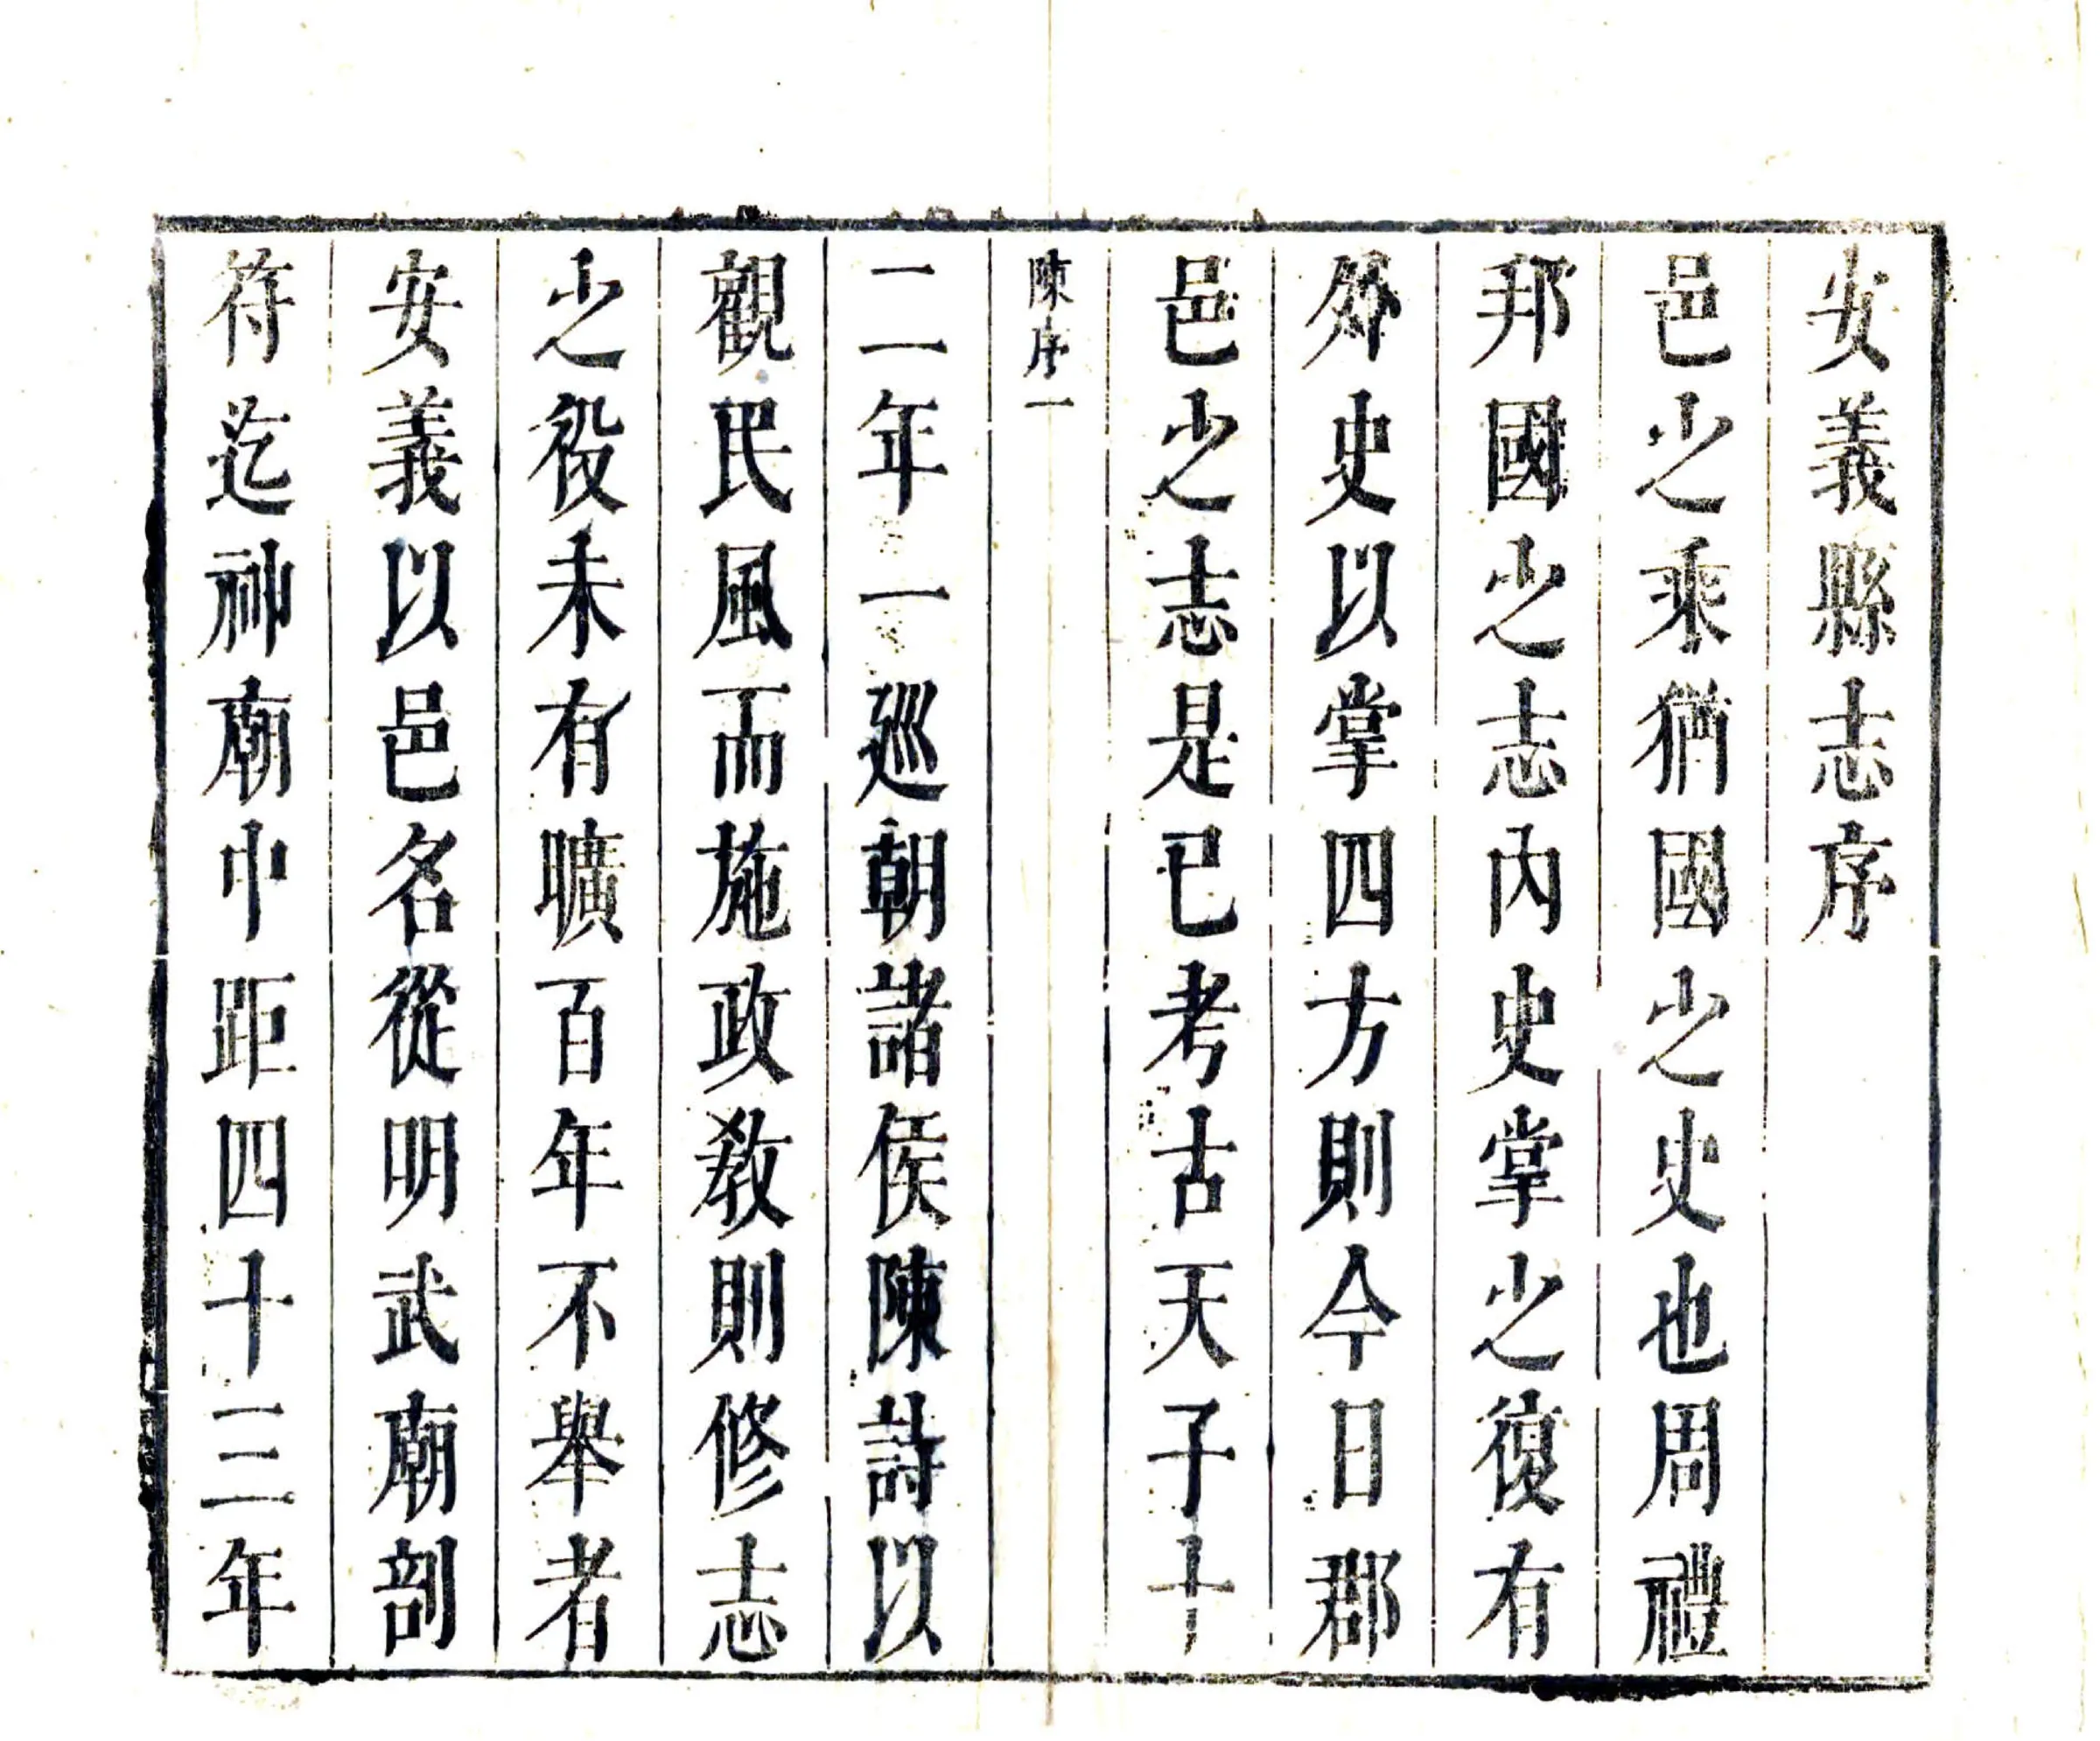 安義縣志序
邑之乘猶國之史也周禮
邦國之志內史掌之復有
外史以掌四方則今日郡
邑之志是已考古天子十
陳序一
二年一巡朝諸侯陳詩以
觀民風而施政敎則修志
之役未有曠百年不舉者
安義以邑名從明武廟剖
符迄神廟中距四十三年